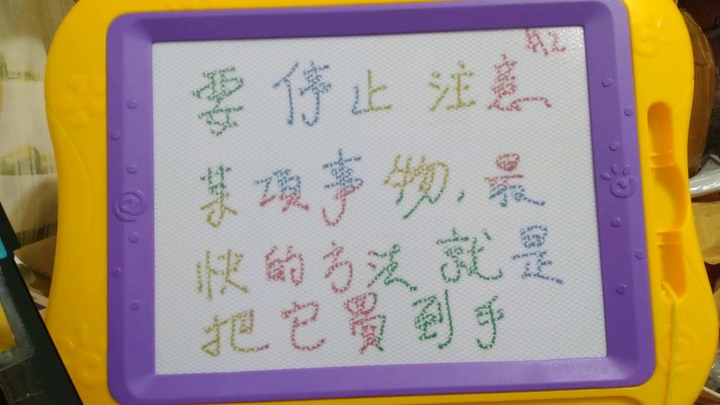 要停止注意
某項事物,最
快的方法就是
把它買到手